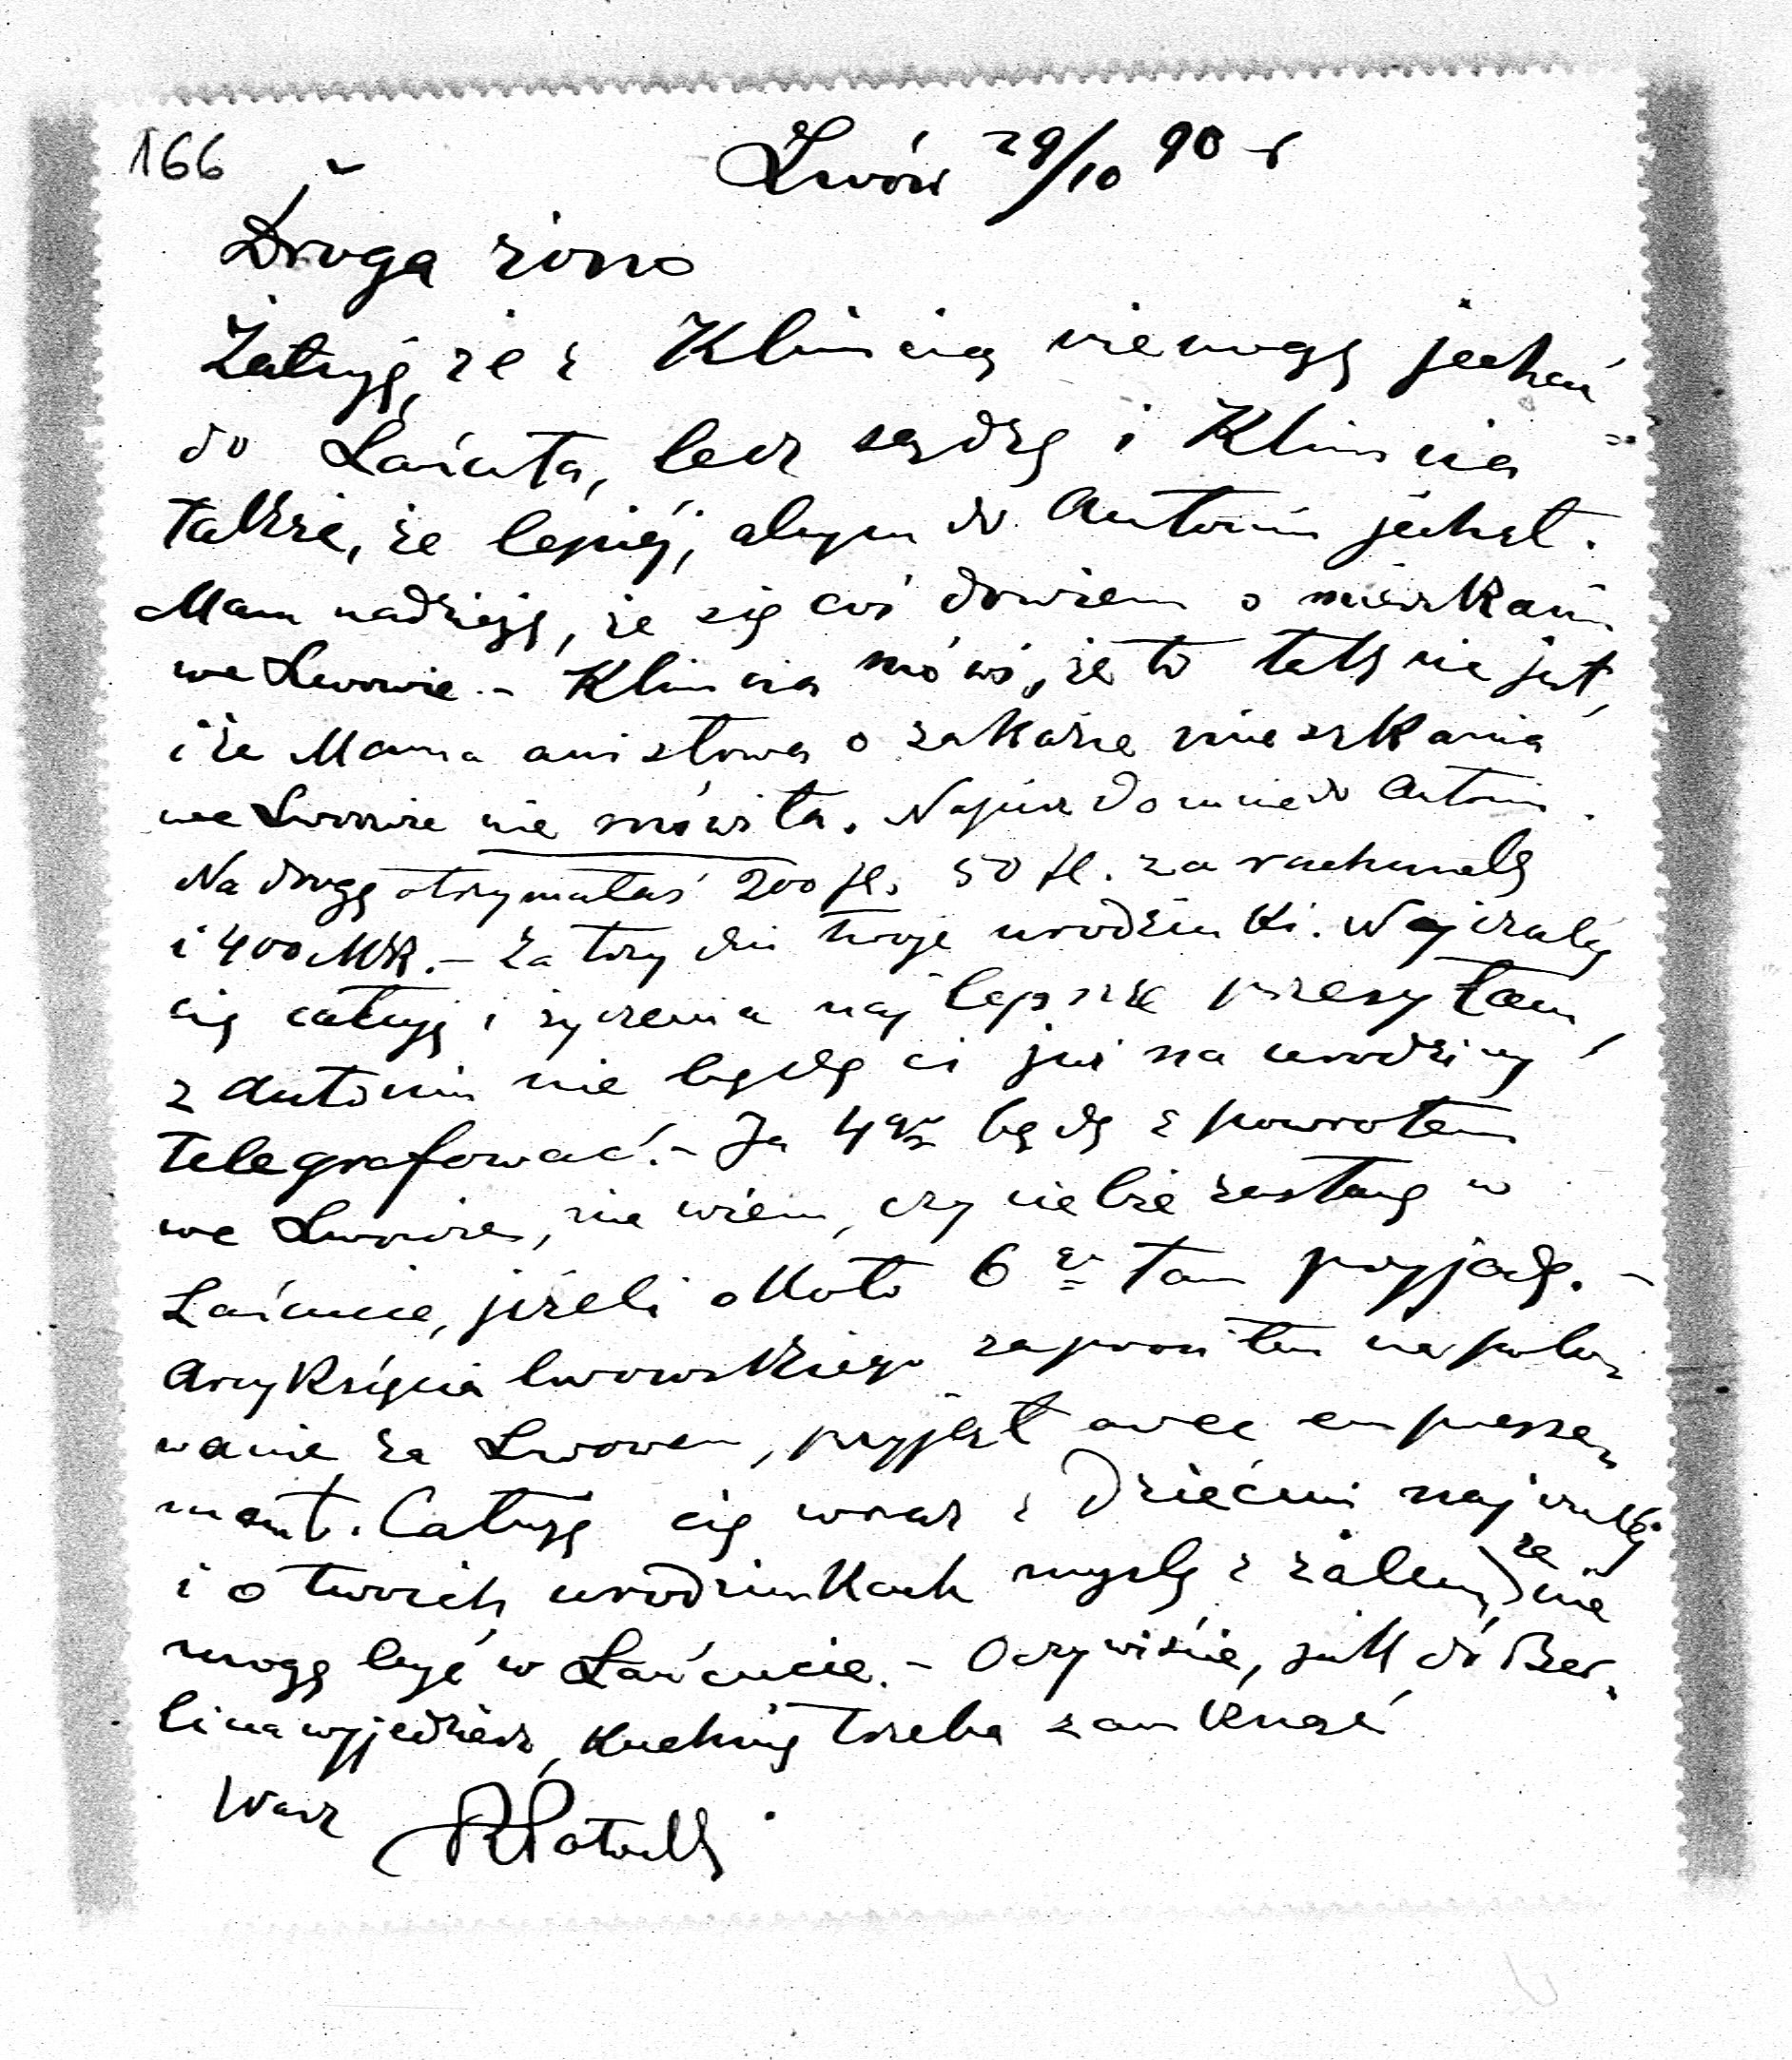 166
Lwów 29/10 90 r
Droga żono
Żałuję, że z Klimcią nie mogę jechać
do Łańcuta, lecz sądzę i Klimcia
także, że lepiéj, abym do Antonin jechał.
Mam nadzieję, że się coś dowiem o mieszkaniu
we Lwowie. - Klimcia mówi, że to tak nie jest,
i że Mama ani słowa o zakazie mieszkania
we Lwowie nie mówiła. Napisz do mnie do Antonin.
Na drogę otrzymałaś 200 fl. 50 fl. za rachunek
i 400 Mk. - Za trzy dni twoje urodzinki. Najczulej
cię całuję i życzenia najlepsze przesyłam,
z Antonin nie będę ci już na urodziny
telegrafować. - Ja 4go będę z powrotem
we Lwowie, nie wiem, czy ciebie zastanę w
Łańcucie, jeżeli około 6go tam przyjadę. -
Arcyksięcia lwowskiego zaprosiłem na polo-
wanie za Lwowem, przyjął avec empresse-
ment. Całuję cię wraz z dziećmi najczulej
i o twoich urodzinkach myślę z żalem, że nie
mogę być w Łańcucie. - Oczywiście, jak do Ber-
lina wyjedziesz, kuchnię trzeba zamknąć
Wasz RPotocki